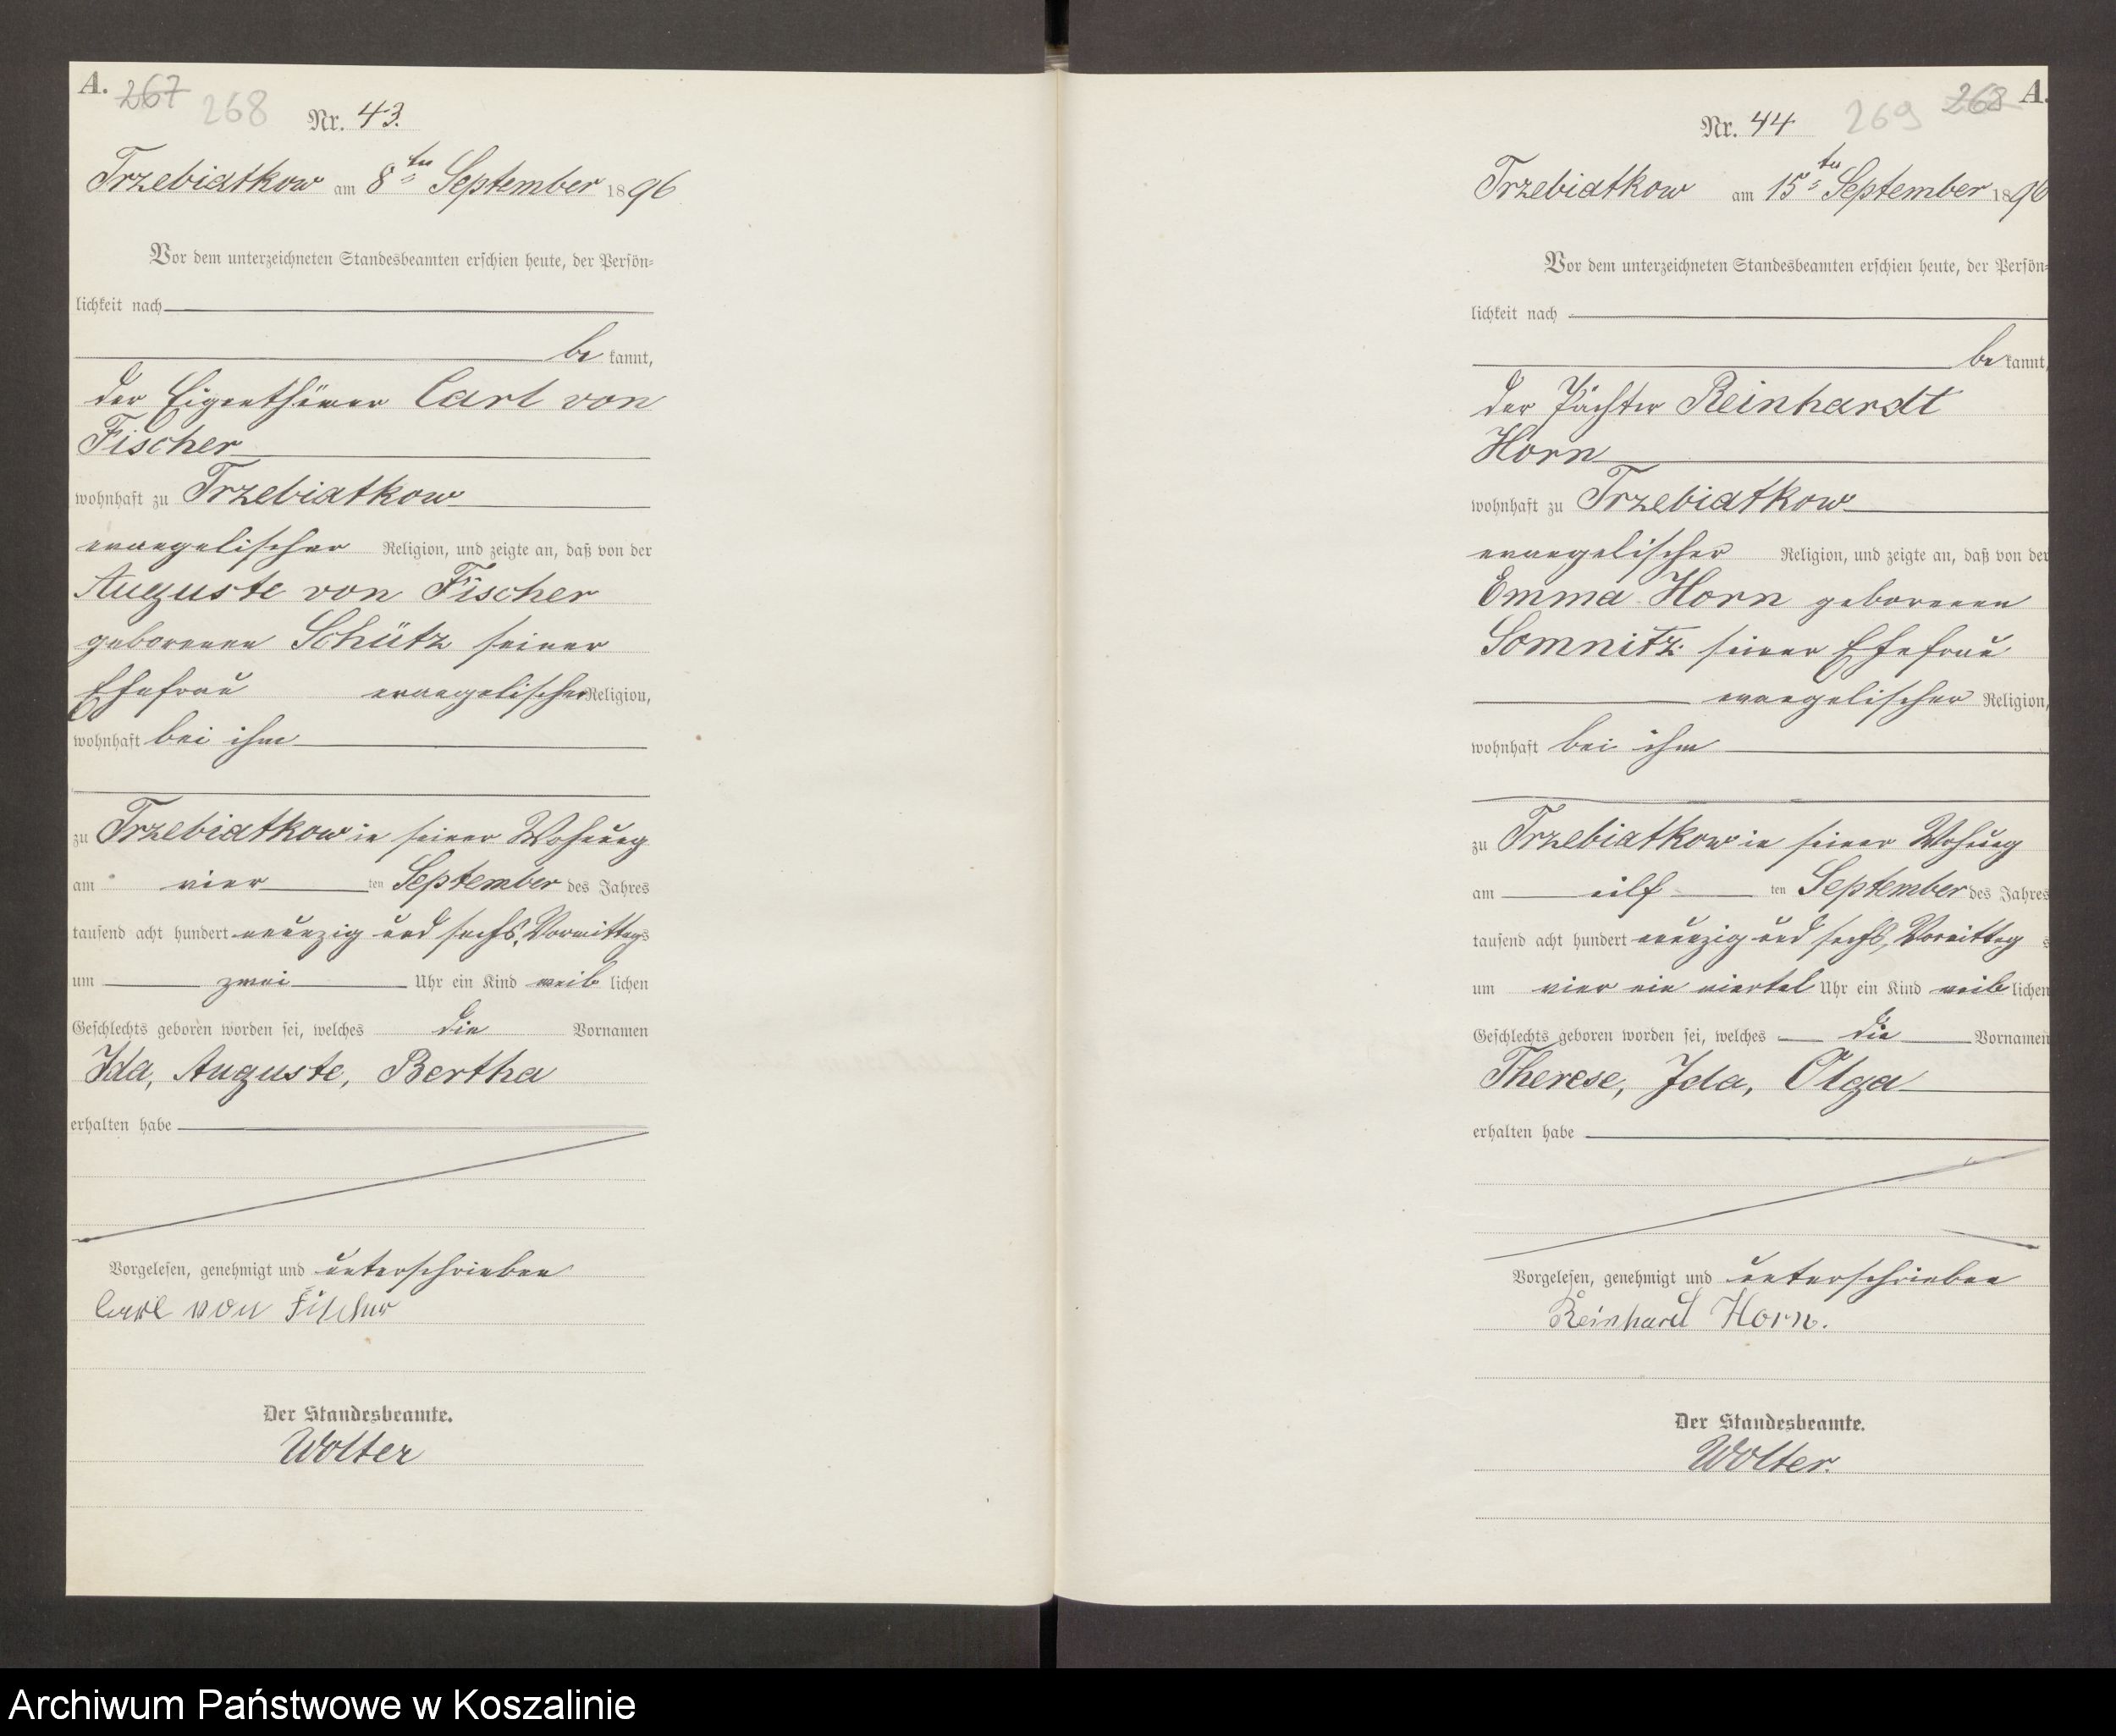 A. 267 268
Nr. 43.
Trzebiatkow am 8ten September 1896
Vor dem unterzeichneten Standesbeamten erschien heute, der Persön-
lichkeit nach
be kannt,
der Eigenthümer Carl von
Fischer
wohnhaft zu Trzebiatkow
evangelischer Religion, und zeigte an, daß von der
Auguste von Fischer
geborenen Schütz seiner
Ehefrau evangelischer Religion,
wohnhaft bei ihm
zu Trzebiatkow in seiner Wohnung
am vier ten September des Jahres
tausend acht hundert neunzig und sechs, Vormittags
um zwei Uhr ein Kind weib lichen
Geschlechts geboren worden sei, welches die Vornamen
Ida, Auguste, Bertha
erhalten habe
Vorgelesen, genehmigt und unterschrieben
Carl von Fischer
Der Standesbeamte.
Wolter
269 268 A.
Nr. 44
Trzebiatkow am 15ten September 1896
Vor dem unterzeichneten Standesbeamten erschien heute, der Persön-
lichkeit nach
be kannt,
der Pächter Reinhardt
Horn
wohnhaft zu Trzebiatkow
evangelischer Religion, und zeigte an, daß von der
Emma Horn geborenen
Somnitz seiner Ehefrau
evangelischer Religion,
wohnhaft bei ihm
zu Trzebiatkow in seiner Wohnung
am eilf ten September des Jahres
tausend acht hundert neunzig und sechs, Vormittag s
um vier ein viertel Uhr ein Kind weib lichen
Geschlechts geboren worden sei, welches die Vornamen
Therese, Ida, Olga
erhalten habe
Vorgelesen, genehmigt und unterschrieben
Reinhard Horn.
Der Standesbeamte.
Wolter.
Archiwum Państwowe w Koszalinie